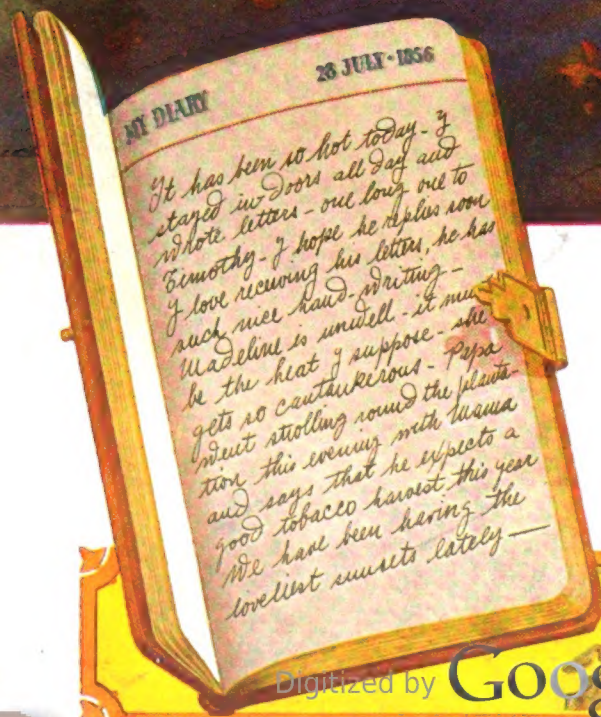 MY DIARY 28 JULY · 1856
It has been so hot today - I
stayed in doors all day and
wrote letters - one long one to
Timothy - I hope he replies soon
I love receiving his letters, he has
such nice hand-writing -
Madeline is unwell - it mu
be the heat I suppose - she
gets so cantankerous - Papa
went strolling round the planta-
tion this evening with Mama
and says that he expects a
good tobacco harvest this year
We have been having the
loveliest sunsets lately —
Digitized by Goog